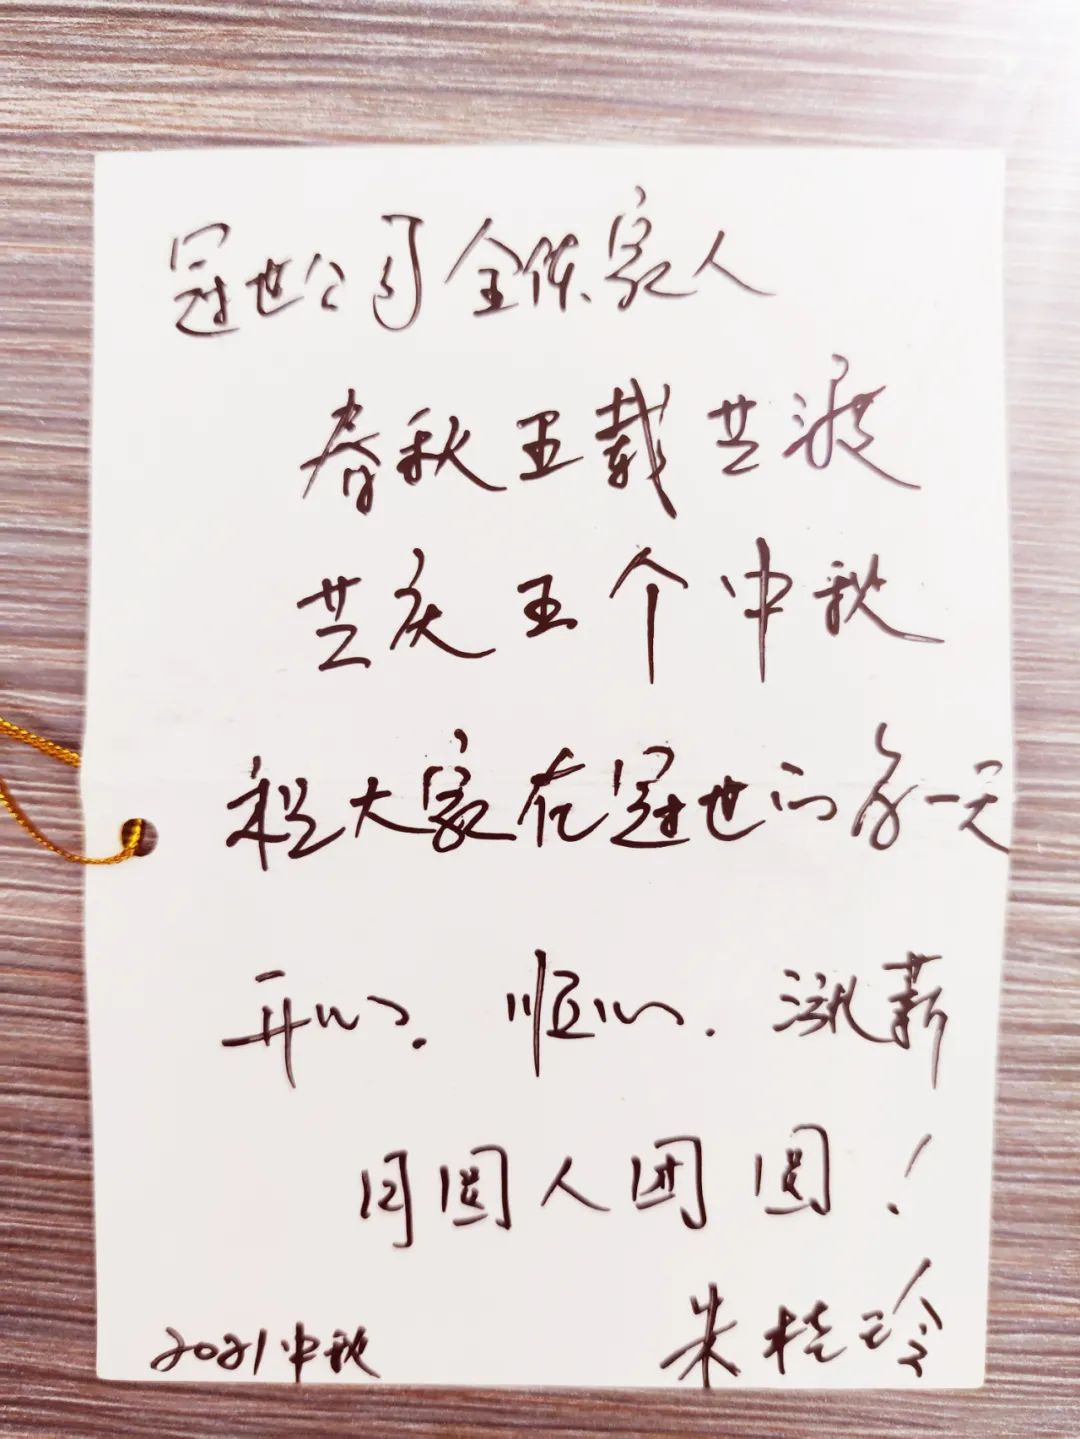 冠世公司全体家人
春秋五载共渡
共庆五个中秋
祝大家在冠世的每一天
开心. 顺心. 涨薪
月圆人团圆!
朱桂玲
2021中秋